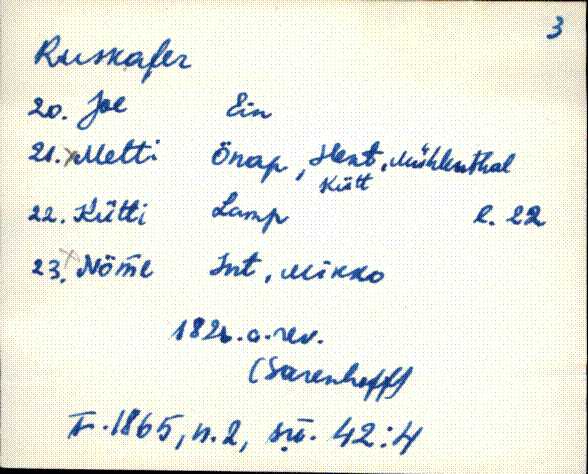 3
Ruskafer
20. Joe Ein
21. Metti Önap, Hent, Mühlenthal
Kütt
22. Kütti Lamp l. 22
23. Nõme Int, Mikko
182 . a. rev.
(Sarenhoff)
F. 1865, n. 2, sü. 42:4